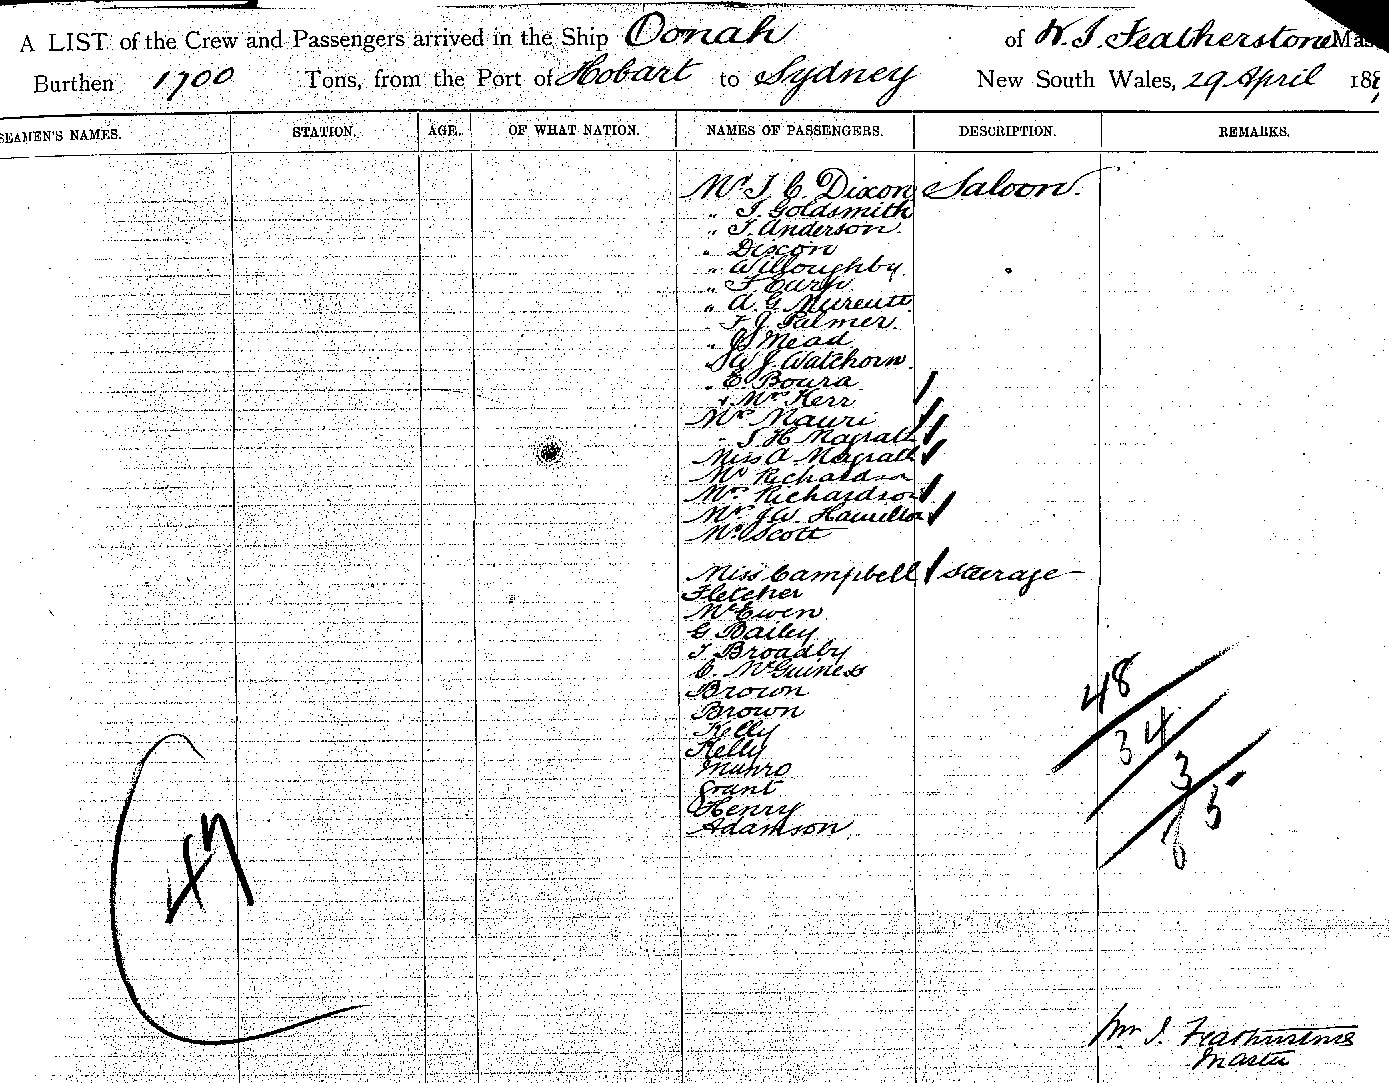 A LIST of the Crew and Passengers arrived in the Ship Oonah of W. J. Featherstone Mas
Burthen 1700 Tons, from the Port of Hobart to Sydney New South Wales, 29 April 188
SEAMEN'S NAMES. STATION. AGE. OF WHAT NATION. NAMES OF PASSENGERS. DESCRIPTION. REMARKS.
Mr J C Dixon Saloon.
" J. Goldsmith
" J. Anderson
" Dixon
" Willoughby
" F
" A. G. Murcutt
F J. Palmer
" Mead
" W J. Watchorn
" E. Boura
+ Mrs Kerr
Mrs Mauri
" J H Magrath
Miss A Magrath
Mr Richardson
Mrs Richardson
Mrs J W. Hamilton
Mr Scott
Miss Campbell steerage
Fletcher
McEwen
G Bailey
J Broadby
C. McGuiness
Brown
Brown
Kelly
Kelly
Munro
Grant
Henry
Adamson
48
34
3
5
6
47
Wm J. Featherstone
Master